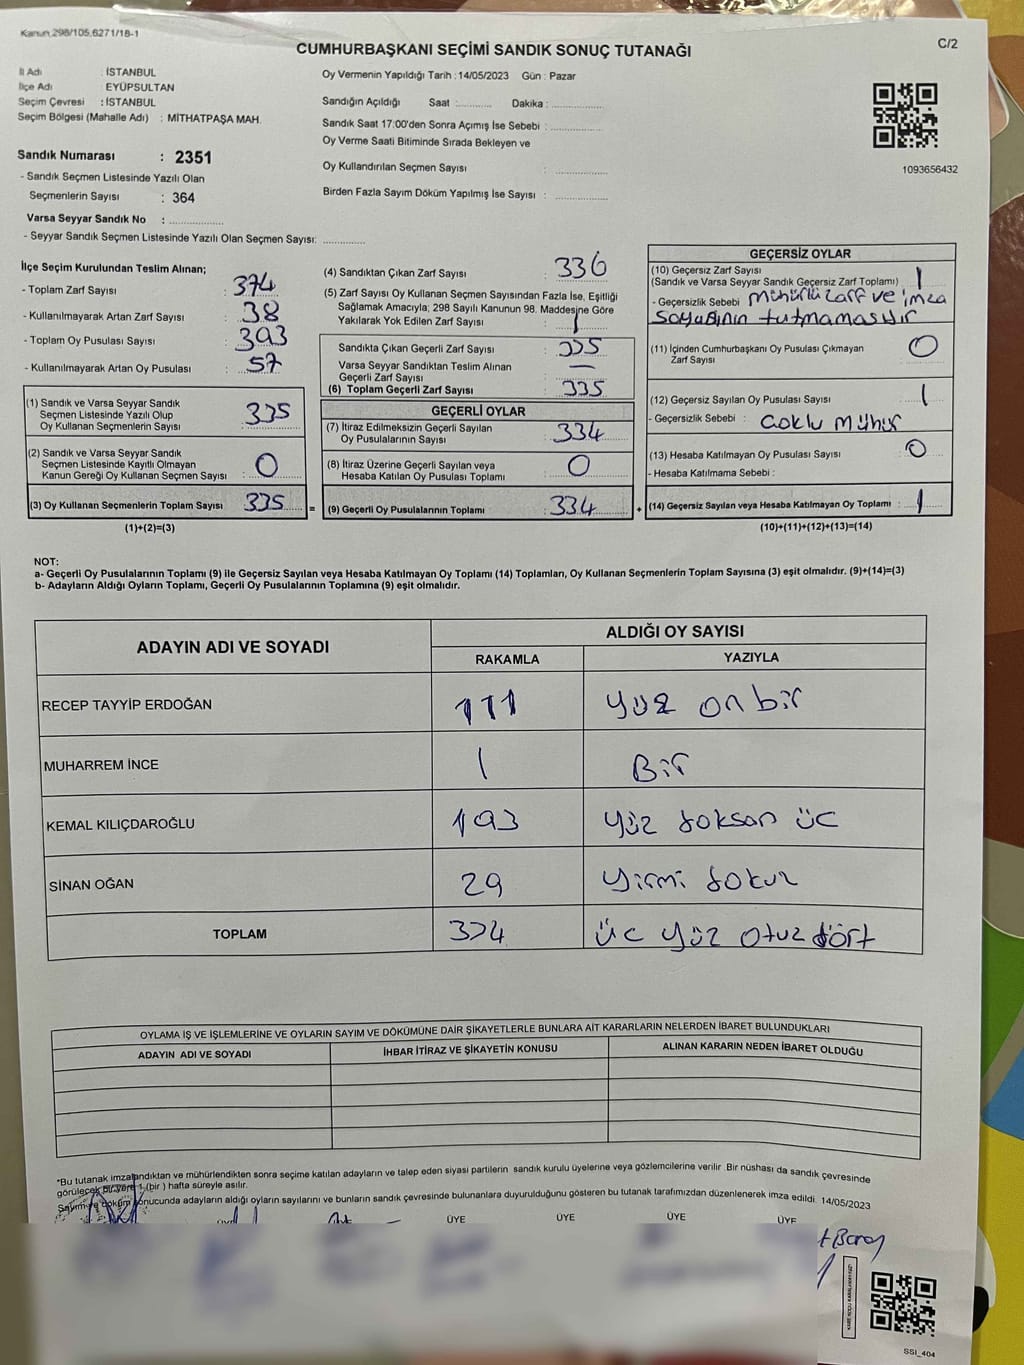 Kanun 298/105,6271/18-1
C/2
CUMHURBAŞKANI SEÇİMİ SANDIK SONUÇ TUTANAĞI
İl Adı : İSTANBUL
İlçe Adı : EYÜPSULTAN
Seçim Çevresi : İSTANBUL
Seçim Bölgesi (Mahalle Adı) : MİTHATPAŞA MAH.
Sandık Numarası : 2351
- Sandık Seçmen Listesinde Yazılı Olan
Seçmenlerin Sayısı : 364
Varsa Seyyar Sandık No : ............
- Seyyar Sandık Seçmen Listesinde Yazılı Olan Seçmen Sayısı: ............
Oy Vermenin Yapıldığı Tarih : 14/05/2023 Gün : Pazar
Sandığın Açıldığı Saat :.......... Dakika : ..............
Sandık Saat 17:00'den Sonra Açımış İse Sebebi : ..............
Oy Verme Saati Bitiminde Sırada Bekleyen ve
Oy Kullandırılan Seçmen Sayısı : ..............
Birden Fazla Sayım Döküm Yapılmış İse Sayısı : ..............
1093656432
İlçe Seçim Kurulundan Teslim Alınan;
- Toplam Zarf Sayısı : 374
- Kullanılmayarak Artan Zarf Sayısı : 38
- Toplam Oy Pusulası Sayısı : 393
- Kullanılmayarak Artan Oy Pusulası : 57
(1) Sandık ve Varsa Seyyar Sandık
Seçmen Listesinde Yazılı Olup
Oy Kullanan Seçmenlerin Sayısı : 335
(2) Sandık ve Varsa Seyyar Sandık
Seçmen Listesinde Kayıtlı Olmayan
Kanun Gereği Oy Kullanan Seçmen Sayısı : 0
(3) Oy Kullanan Seçmenlerin Toplam Sayısı : 335
(1)+(2)=(3)
=
(4) Sandıktan Çıkan Zarf Sayısı : 336
(5) Zarf Sayısı Oy Kullanan Seçmen Sayısından Fazla İse, Eşitliği
Sağlamak Amacıyla; 298 Sayılı Kanunun 98. Maddesine Göre
Yakılarak Yok Edilen Zarf Sayısı : 1
Sandıkta Çıkan Geçerli Zarf Sayısı : 335
Varsa Seyyar Sandıktan Teslim Alınan
Geçerli Zarf Sayısı : —
(6) Toplam Geçerli Zarf Sayısı : 335
GEÇERLİ OYLAR
(7) İtiraz Edilmeksizin Geçerli Sayılan
Oy Pusulalarının Sayısı : 334
(8) İtiraz Üzerine Geçerli Sayılan veya
Hesaba Katılan Oy Pusulası Toplamı : 0
(9) Geçerli Oy Pusulalarının Toplamı : 334
+
GEÇERSİZ OYLAR
(10) Geçersiz Zarf Sayısı
(Sandık ve Varsa Seyyar Sandık Geçersiz Zarf Toplamı) : 1
- Geçersizlik Sebebi : mühürlü zarf ve imza
sayısının tutmamasıdır
(11) İçinden Cumhurbaşkanı Oy Pusulası Çıkmayan
Zarf Sayısı : 0
(12) Geçersiz Sayılan Oy Pusulası Sayısı : 1
- Geçersizlik Sebebi : Çoklu Mühür
(13) Hesaba Katılmayan Oy Pusulası Sayısı : 0
- Hesaba Katılmama Sebebi :
(14) Geçersiz Sayılan veya Hesaba Katılmayan Oy Toplamı : 1
(10)+(11)+(12)+(13)=(14)
NOT:
a- Geçerli Oy Pusulalarının Toplamı (9) ile Geçersiz Sayılan veya Hesaba Katılmayan Oy Toplamı (14) Toplamları, Oy Kullanan Seçmenlerin Toplam Sayısına (3) eşit olmalıdır. (9)+(14)=(3)
b- Adayların Aldığı Oyların Toplamı, Geçerli Oy Pusulalarının Toplamına (9) eşit olmalıdır.
ADAYIN ADI VE SOYADI
ALDIĞI OY SAYISI
RAKAMLA YAZIYLA
RECEP TAYYİP ERDOĞAN 111 Yüz on bir
MUHARREM İNCE 1 Bir
KEMAL KILIÇDAROĞLU 193 Yüz doksan üç
SİNAN OĞAN 29 Yirmi dokuz
TOPLAM 334 üç yüz otuz dört
OYLAMA İŞ VE İŞLEMLERİNE VE OYLARIN SAYIM VE DÖKÜMÜNE DAİR ŞİKAYETLERLE BUNLARA AİT KARARLARIN NELERDEN İBARET BULUNDUKLARI
ADAYIN ADI VE SOYADI İHBAR İTİRAZ VE ŞİKAYETİN KONUSU ALINAN KARARIN NEDEN İBARET OLDUĞU
*Bu tutanak imzalandıktan ve mühürlendikten sonra seçime katılan adayların ve talep eden siyasi partilerin sandık kurulu üyelerine veya gözlemcilerine verilir. Bir nüshası da sandık çevresinde
görülecek bir yere 1 (bir) hafta süreyle asılır.
Sayım ve döküm sonucunda adayların aldığı oyların sayılarını ve bunların sandık çevresinde bulunanlara duyurulduğunu gösteren bu tutanak tarafımızdan düzenlenerek imza edildi. 14/05/2023
ÜYE ÜYE ÜYE ÜYE
SSI_404